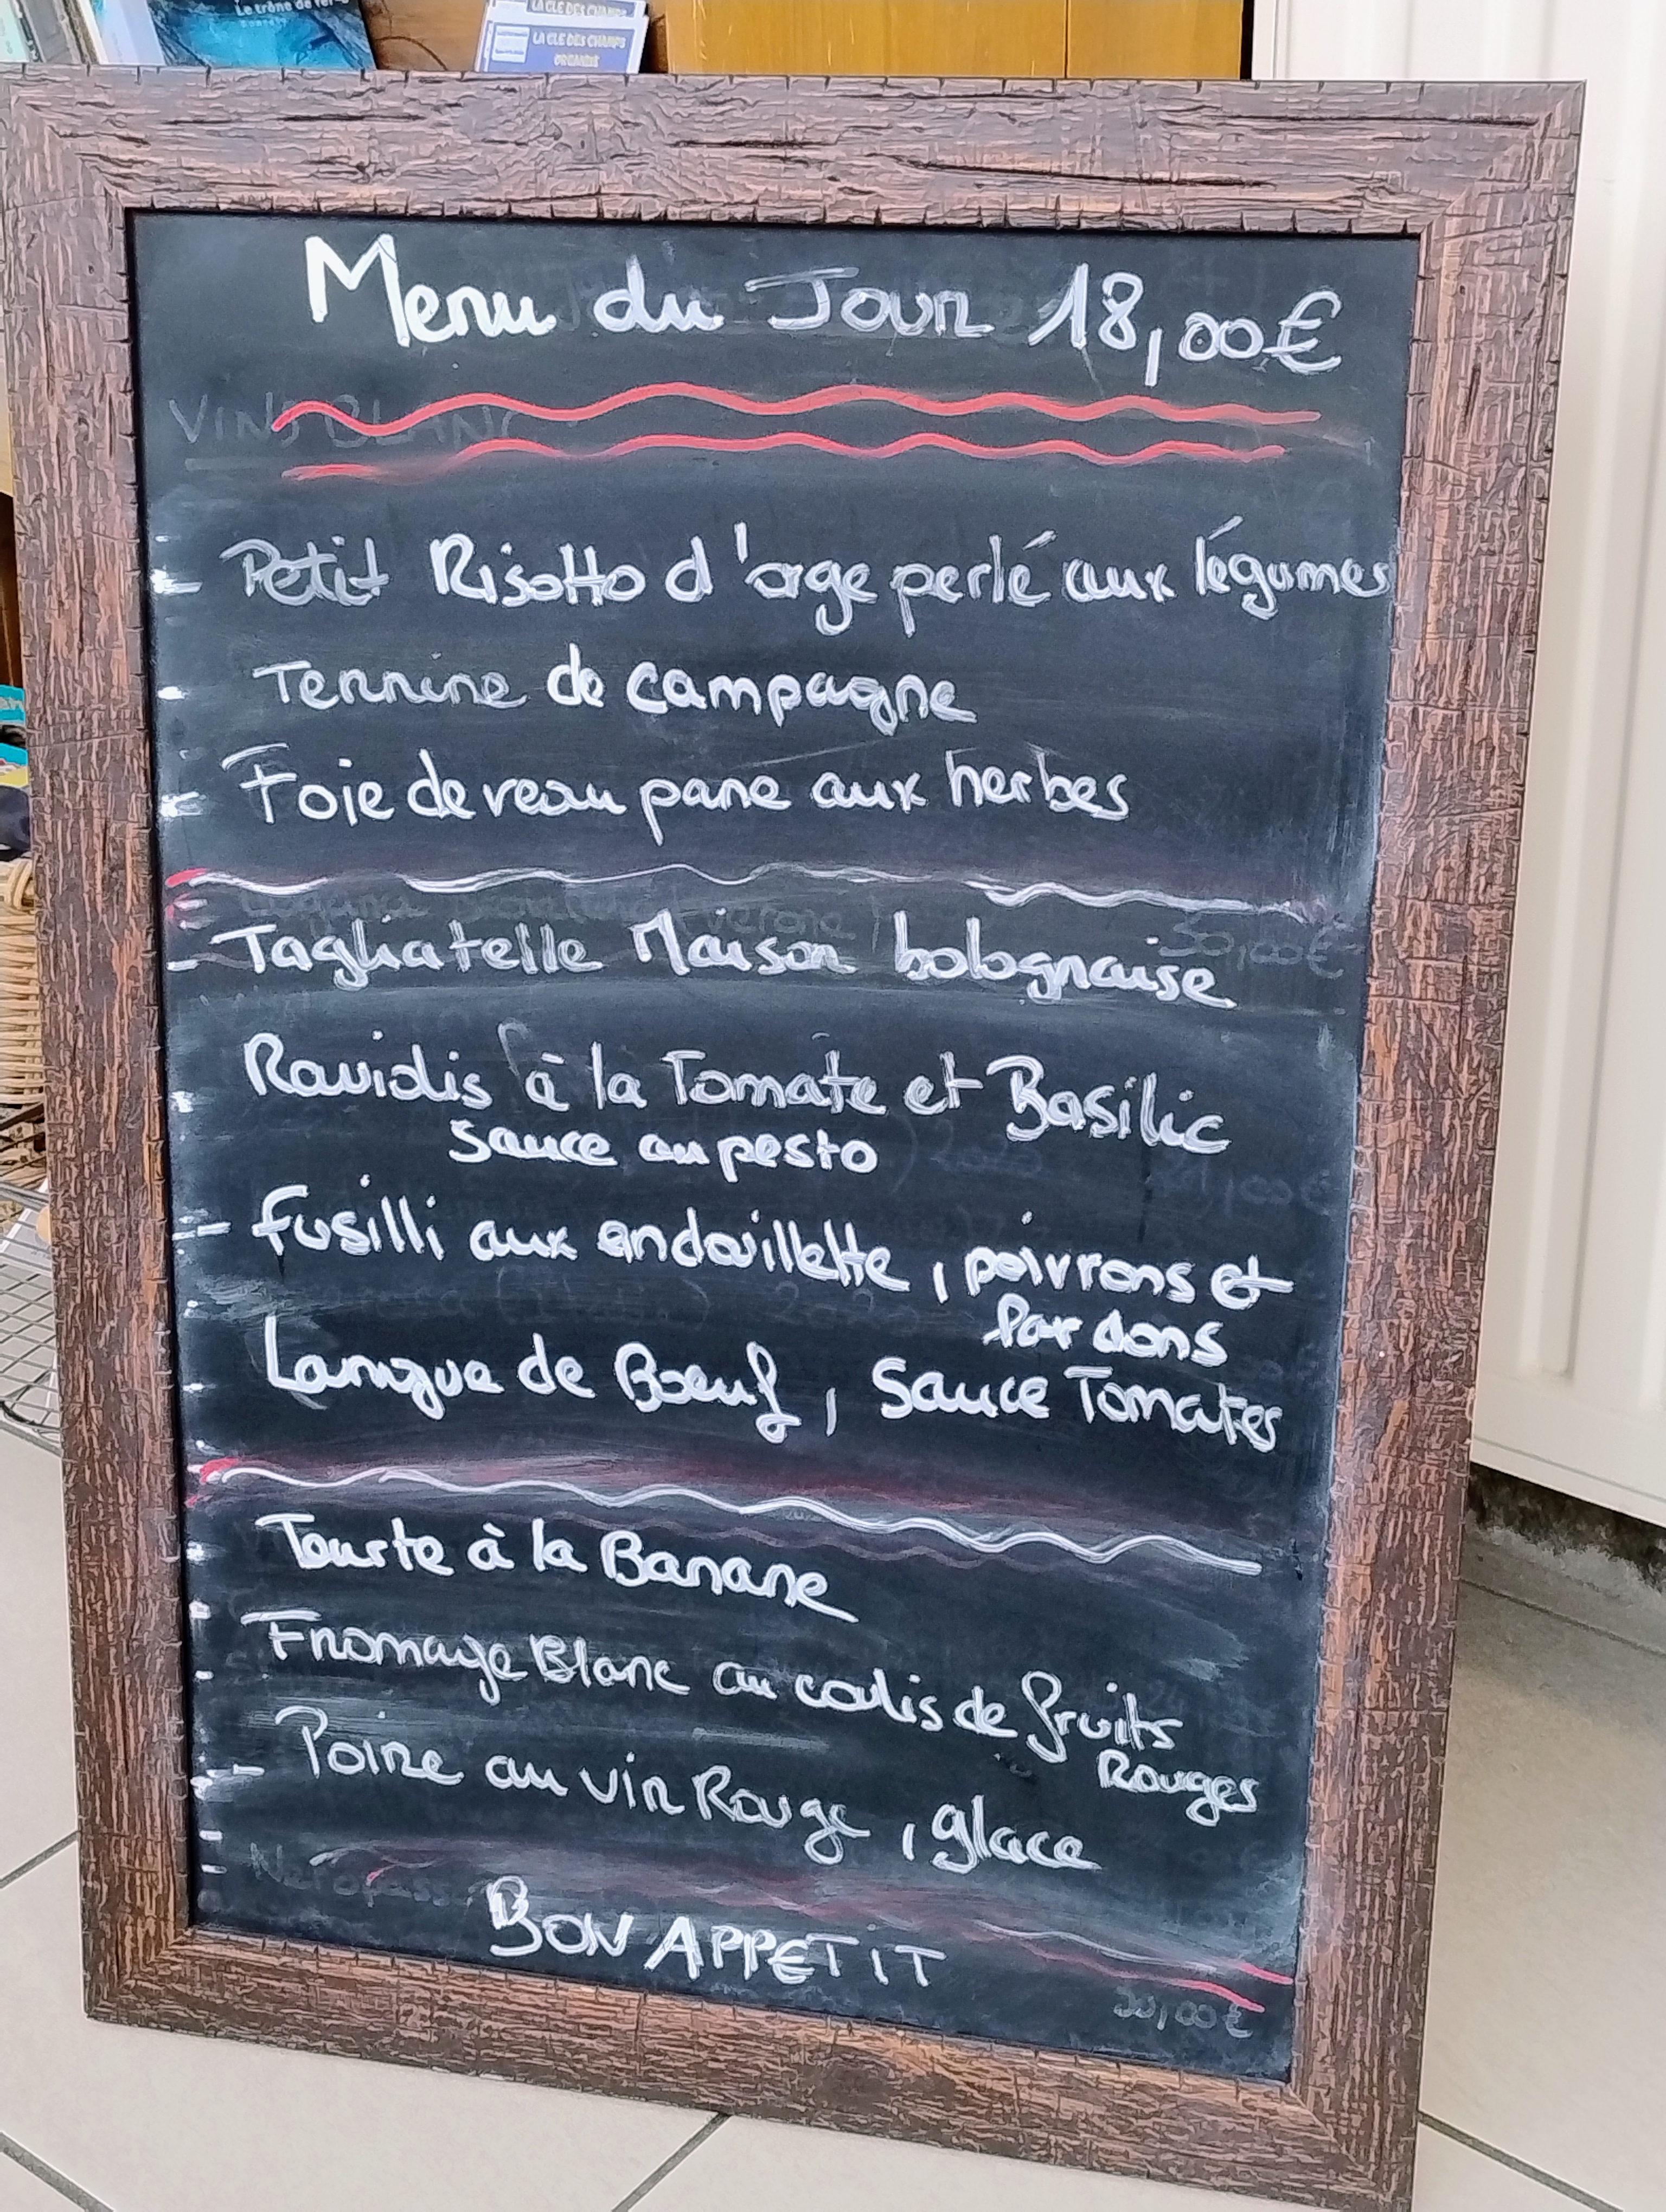 Le trône de fer
LA CLE DES CHAMPS
LA CLE DES CHAMPS
Menu du Jour 18,00€
VINS BLANC
Petit Risotto d'orge perlé aux légumes
Terrine de campagne
Foie de veau pane aux herbes
30,00€
Tagliatelle Maison bolognaise
Raviolis à la Tomate et Basilic
Sauce au pesto
fusilli aux andouillette, poivrons et
lardons
Langue de Boeuf, Sauce Tomates
Tourte à la Banane
Fromage Blanc au coulis de fruits
Rouges
Poire au vin Rouge, glace
BON APPETIT